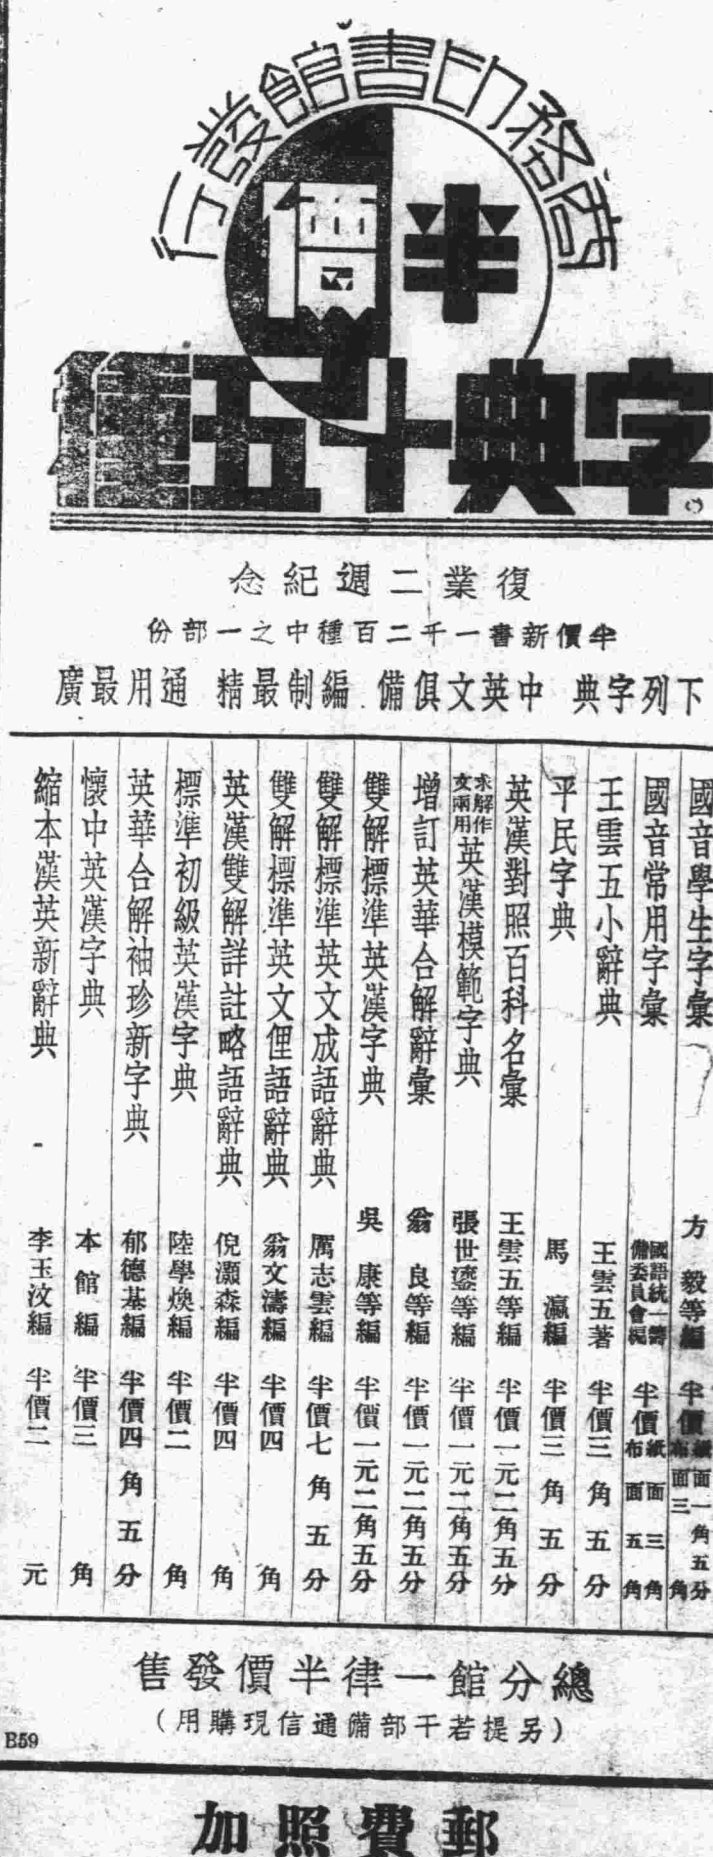 商務印書館發行
半價
字典十五種
復業二週紀念
半價新書一千二百種中之一部份
下列字典 中英文俱備 編制最精 通用最廣
國音學生字彙 方毅等編 半價 紙面一角五分 布面三角
國音常用字彙 國語統一籌備委員會編 半價 紙面三角 布面五角
王雲五小辭典 王雲五著 半價三角五分
平民字典 馬瀛編 半價三角五分
英漢對照百科名彙 王雲五等編 半價一元二角五分
求解作文兩用英漢模範字典 張世鎏等編 半價一元二角五分
增訂英華合解辭彙 翁良等編 半價一元二角五分
雙解標準英漢字典 吳康等編 半價一元二角五分
雙解標準英文成語辭典 厲志雲編 半價七角五分
雙解標準英文俚語辭典 翁文濤編 半價四角
英漢雙解詳註略語辭典 倪灝森編 半價四角
標準初級英漢字典 陸學煥編 半價二角
英華合解袖珍新字典 郁德基編 半價四角五分
懷中英漢字典 本館編 半價三角
縮本漢英新辭典 李玉汶編 半價二元
總分館一律半價發售
(另提若干部備通信現購用)
B59
郵費照加